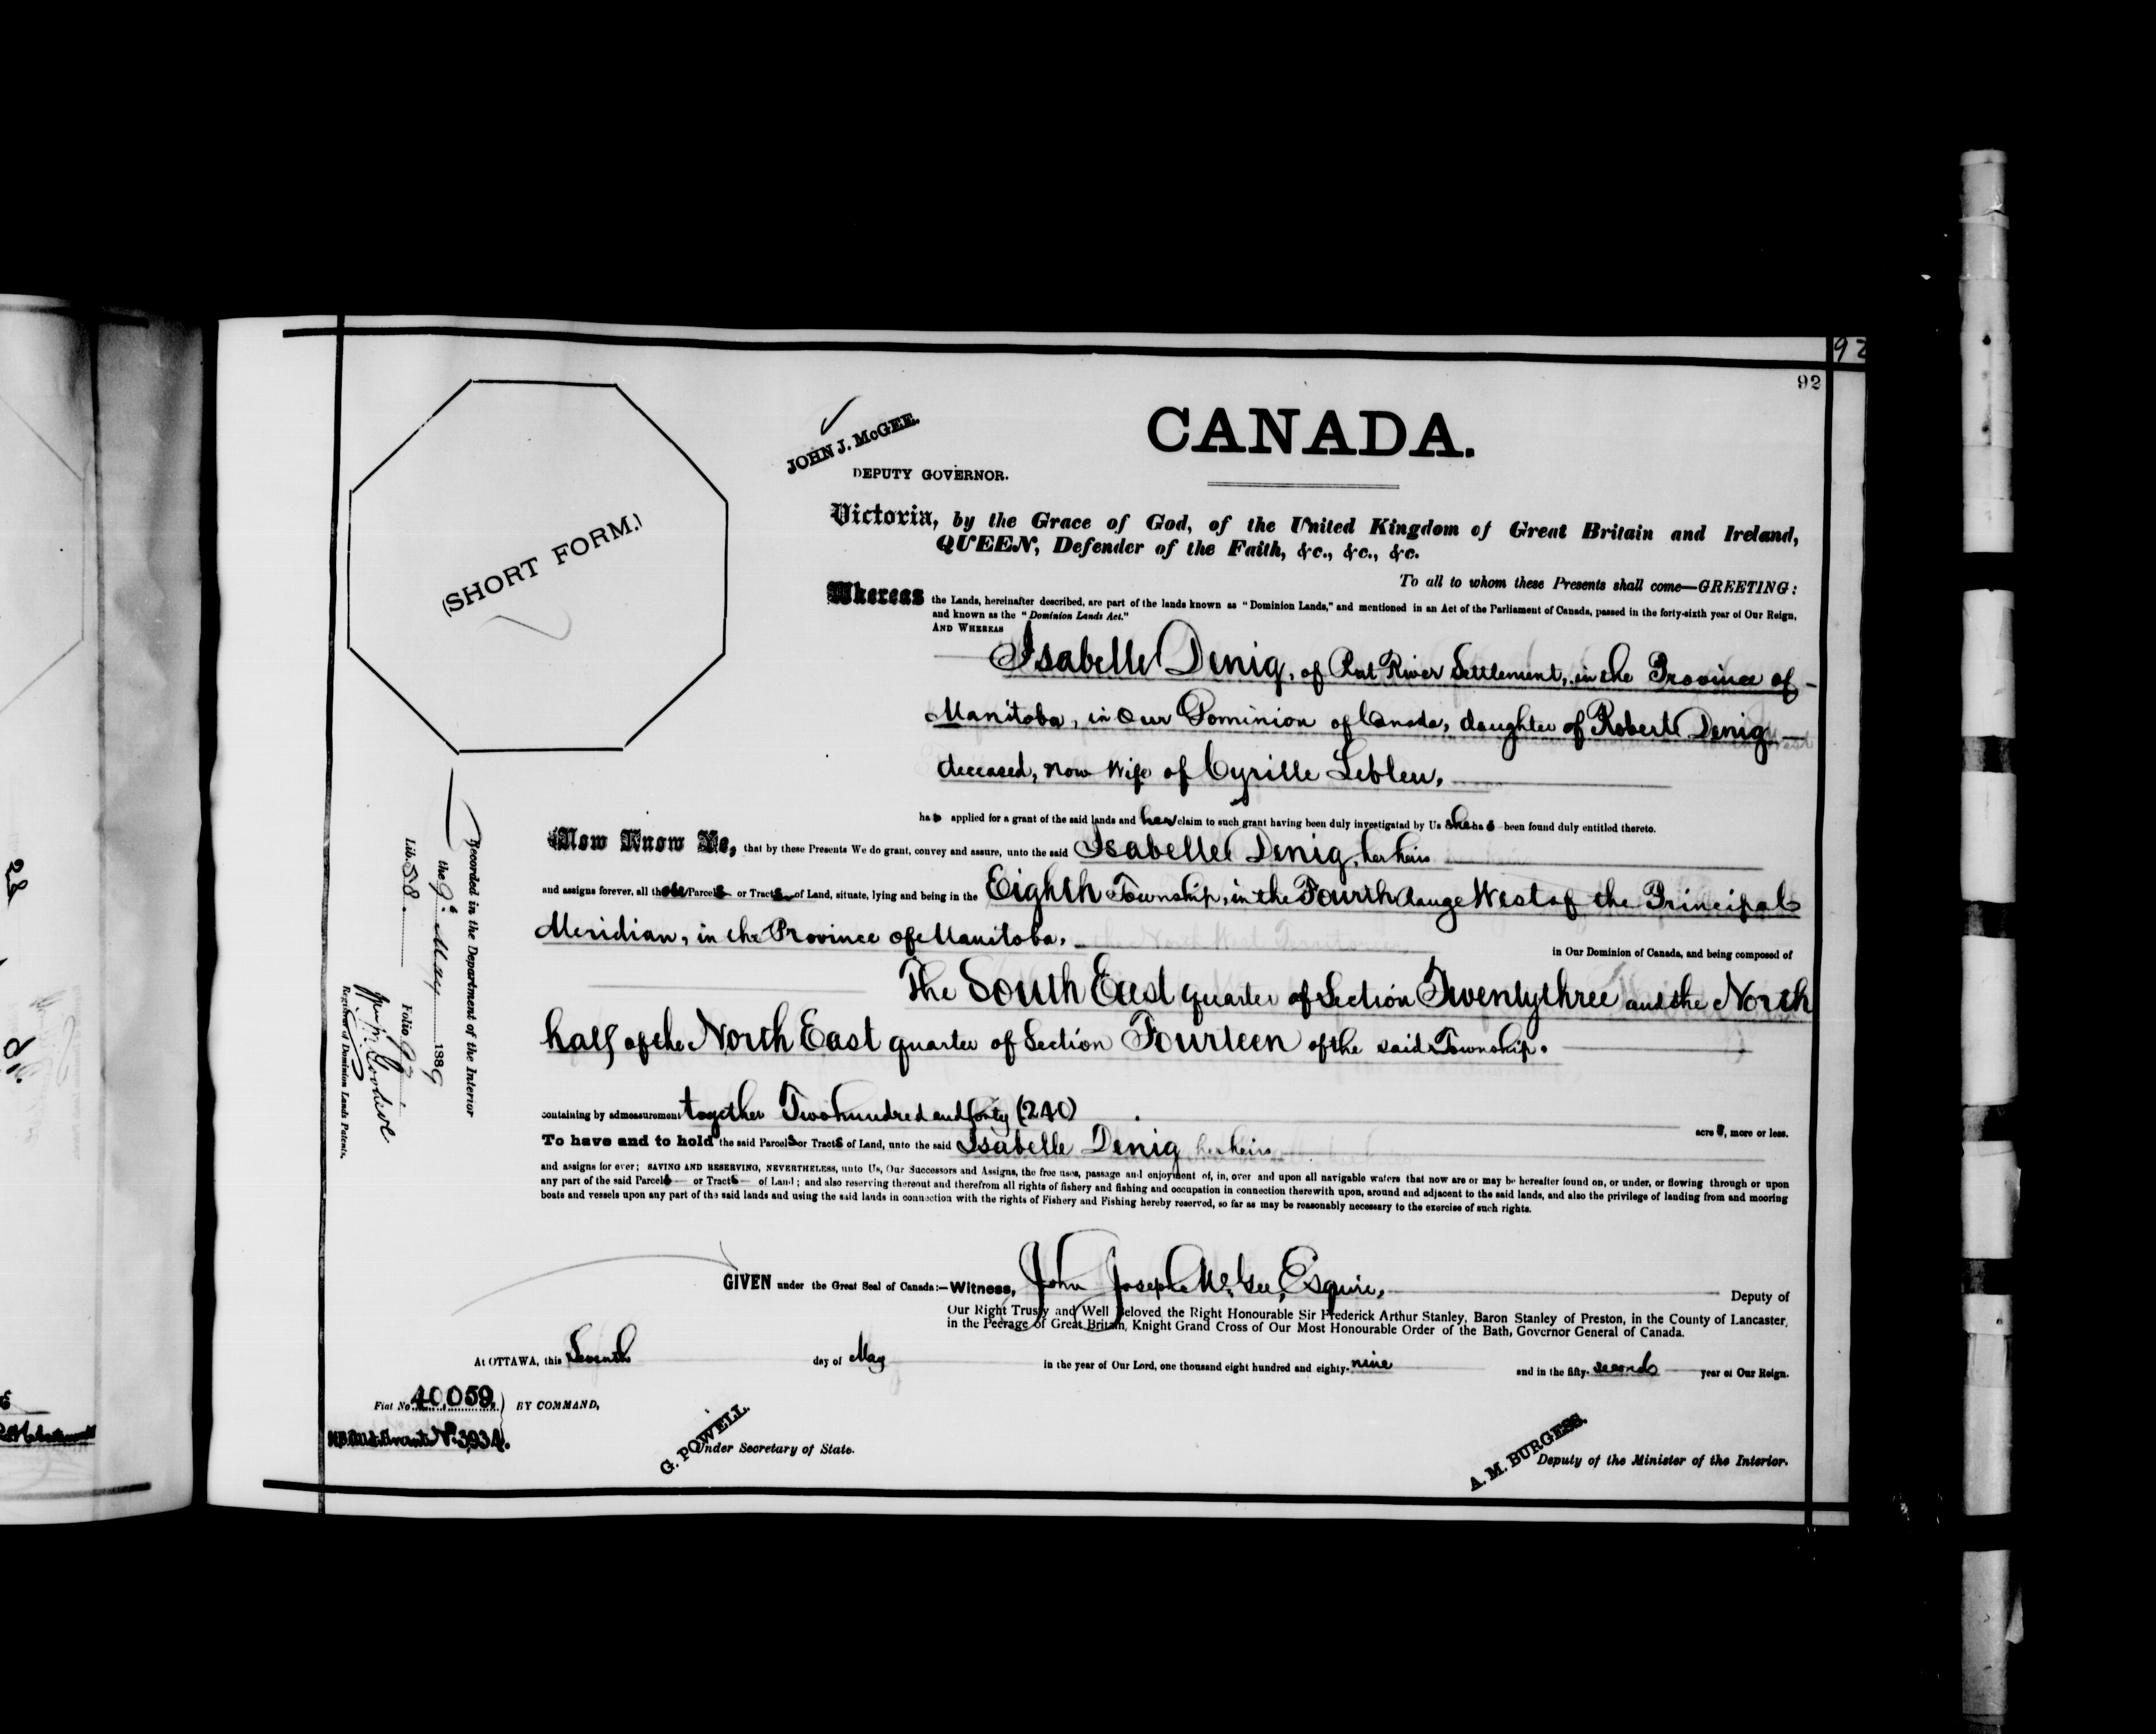 92
92
CANADA.
JOHN J. McGEE.
DEPUTY GOVERNOR.
(SHORT FORM.)
Victoria, by the Grace of God, of the United Kingdom of Great Britain and Ireland,
QUEEN, Defender of the Faith, &c., &c., &c.
To all to whom these Presents shall come—GREETING:
Whereas the Lands, hereinafter described, are part of the lands known as "Dominion Lands," and mentioned in an Act of the Parliament of Canada, passed in the forty-sixth year of Our Reign,
and known as the "Dominion Lands Act."
AND WHEREAS
Isabelle Denig, of Rat River Settlement, in the Province of
Manitoba, in Our Dominion of Canada, daughter of Robert Denig
deceased, now Wife of Cyrille Lebleu,
has applied for a grant of the said lands and her claim to such grant having been duly investigated by Us she has been found duly entitled thereto.
Now Know Ye, that by these Presents We do grant, convey and assure, unto the said Isabelle Denig, her heirs
and assigns forever, all those Parcels or Tracts of Land, situate, lying and being in the Eighth Township, in the Fourth Range West of the Principal
Meridian, in the Province of Manitoba,
in Our Dominion of Canada, and being composed of
The South East quarter of Section Twenty three and the North
half of the North East quarter of Section Fourteen of the said Township.
containing by admeasurement together Two hundred and forty (240)
acres, more or less.
To have and to hold the said Parcels or Tracts of Land, unto the said Isabelle Denig her heirs
and assigns for ever; SAVING AND RESERVING, NEVERTHELESS, unto Us, Our Successors and Assigns, the free uses, passage and enjoyment of, in, over and upon all navigable waters that now are or may be hereafter found on, or under, or flowing through or upon
any part of the said Parcels or Tracts of Land; and also reserving thereout and therefrom all rights of fishery and fishing and occupation in connection therewith upon, around and adjacent to the said lands, and also the privilege of landing from and mooring
boats and vessels upon any part of the said lands and using the said lands in connection with the rights of Fishery and Fishing hereby reserved, so far as may be reasonably necessary to the exercise of such rights.
GIVEN under the Great Seal of Canada:—Witness, John Joseph McGee, Esquire,
Deputy of
Our Right Trusty and Well Beloved the Right Honourable Sir Frederick Arthur Stanley, Baron Stanley of Preston, in the County of Lancaster,
in the Peerage of Great Britain, Knight Grand Cross of Our Most Honourable Order of the Bath, Governor General of Canada.
At OTTAWA, this Seventh day of May in the year of Our Lord, one thousand eight hundred and eighty-nine and in the fifty-second year of Our Reign.
Fiat No. 40,059. BY COMMAND,
Grant No. 3934.
G. POWELL.
Under Secretary of State.
A. M. BURGESS.
Deputy of the Minister of the Interior.
Recorded in the Department of the Interior
the 9th May 1889
Lib. 58. Folio 92
Registrar of Dominion Lands Patents.
28